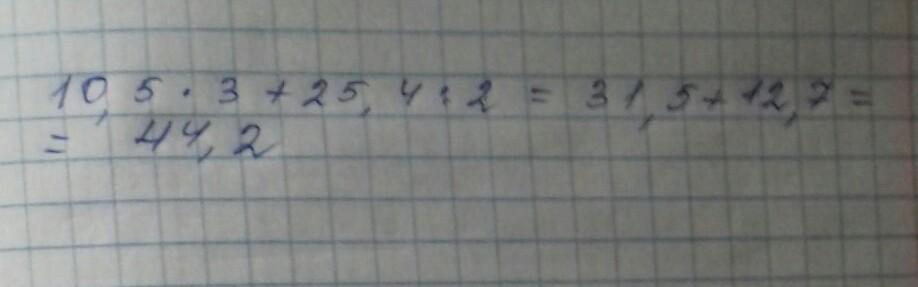 10,5 · 3 + 25,4 : 2 = 31,5 + 12,7 =
= 44,2